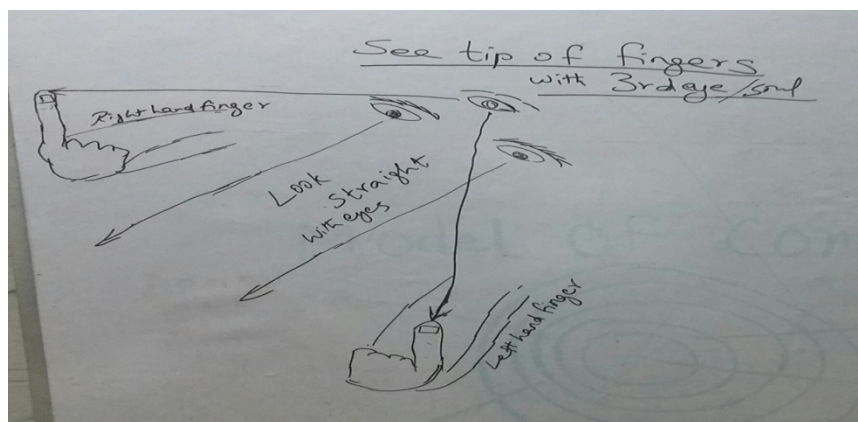 See tip of fingers
with 3rd eye/soul
Right hand finger
Look
Straight
with eyes
Left hand finger
Model OF Con